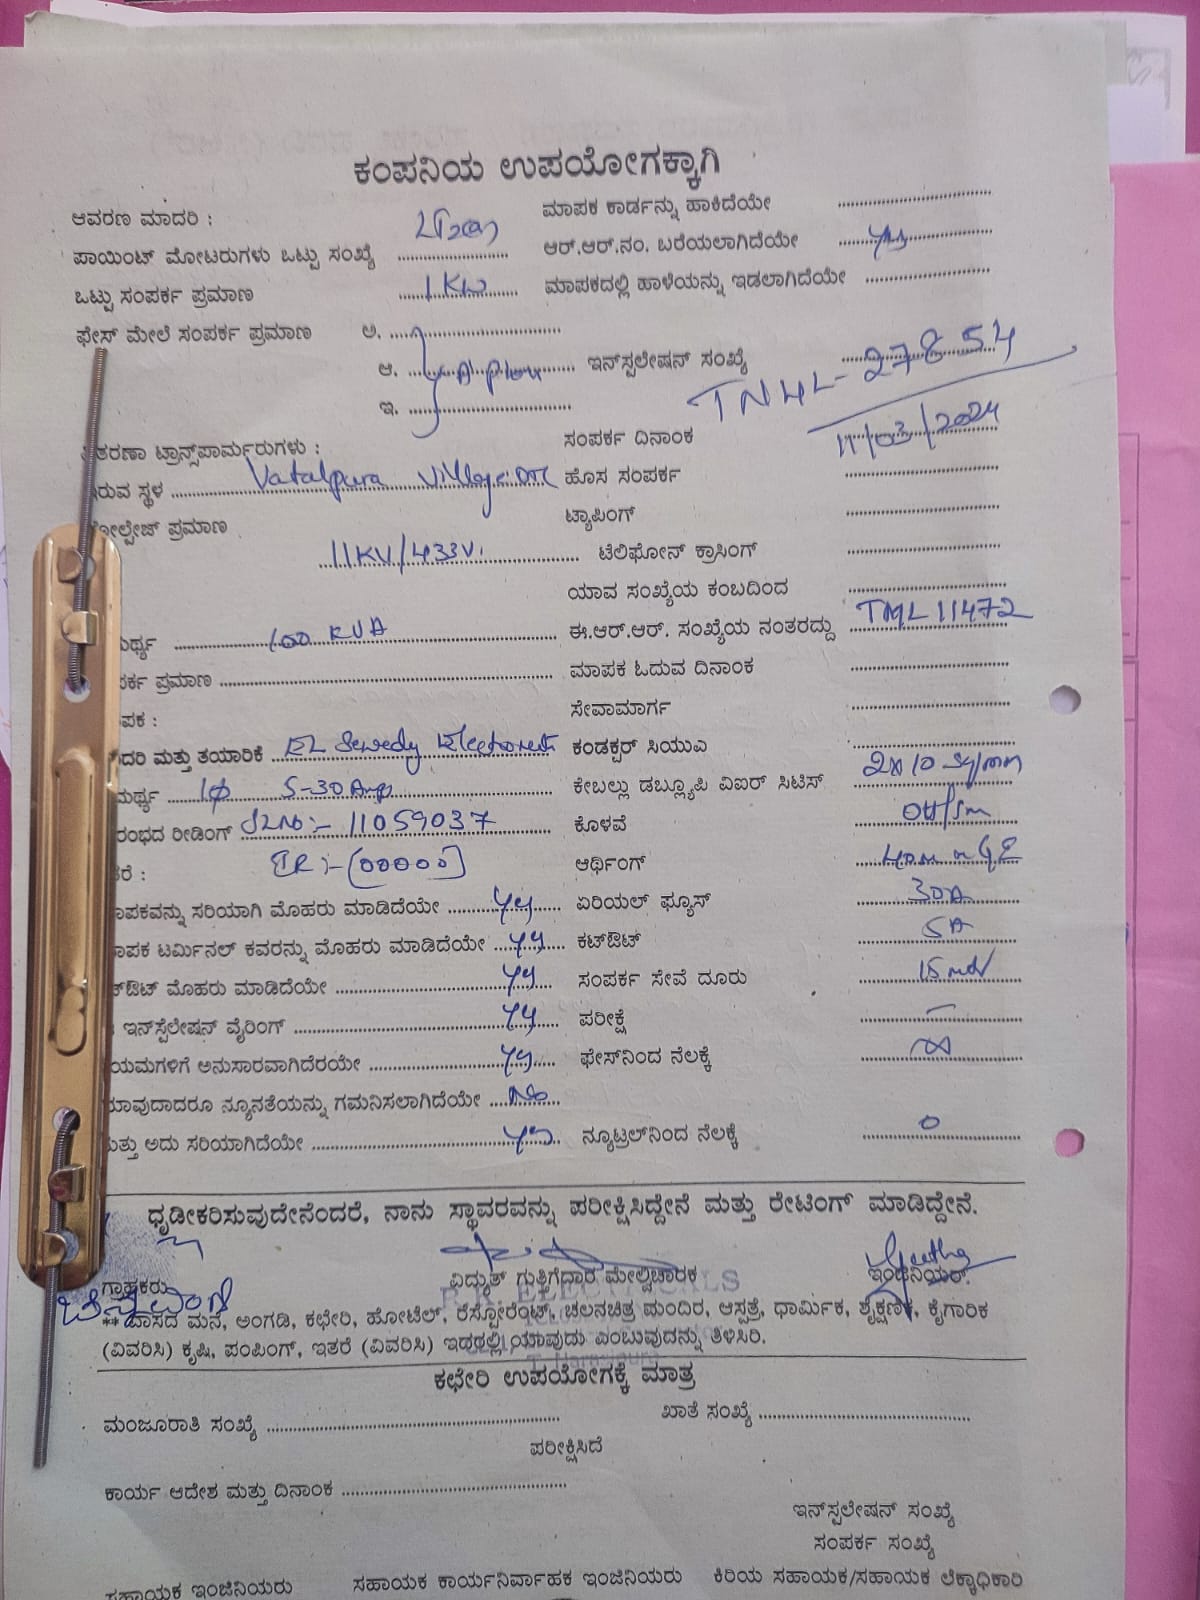 ಕಂಪನಿಯ ಉಪಯೋಗಕ್ಕಾಗಿ
ಆವರಣ ಮಾದರಿ : ಮಾಪಕ ಕಾರ್ಡನ್ನು ಹಾಕಿದೆಯೇ
ಪಾಯಿಂಟ್ ಮೋಟರುಗಳು ಒಟ್ಟು ಸಂಖ್ಯೆ ಆರ್.ಆರ್.ನಂ. ಬರೆಯಲಾಗಿದೆಯೇ yes
ಒಟ್ಟು ಸಂಪರ್ಕ ಪ್ರಮಾಣ 1 KW ಮಾಪಕದಲ್ಲಿ ಹಾಳೆಯನ್ನು ಇಡಲಾಗಿದೆಯೇ
ಫೇಸ್ ಮೇಲೆ ಸಂಪರ್ಕ ಪ್ರಮಾಣ ಅ.
ಆ. ಇನ್ಸ್ಟಲೇಷನ್ ಸಂಖ್ಯೆ TNHL-27854
ಇ. 11/03/2024
ತರಣಾ ಟ್ರಾನ್ಸ್‌ಪಾರ್ಮರುಗಳು : ಸಂಪರ್ಕ ದಿನಾಂಕ
ಇರುವ ಸ್ಥಳ Vatalpura Village ಹೊಸ ಸಂಪರ್ಕ
ವೋಲ್ಟೇಜ್ ಪ್ರಮಾಣ ಟ್ಯಾಪಿಂಗ್
11KV/433V. ಟೆಲಿಫೋನ್ ಕ್ರಾಸಿಂಗ್
ಯಾವ ಸಂಖ್ಯೆಯ ಕಂಬದಿಂದ
ಮರ್ಥ್ಯ 100 KVA ಈ.ಆರ್.ಆರ್. ಸಂಖ್ಯೆಯ ನಂತರದ್ದು 11472
ಪರ್ಕ ಪ್ರಮಾಣ ಮಾಪಕ ಓದುವ ದಿನಾಂಕ
ಪಕ : ಸೇವಾಮಾರ್ಗ
ದರಿ ಮತ್ತು ತಯಾರಿಕೆ EL Sewedy ಕಂಡಕ್ಟರ್ ಸಿಯುಎ
ಮರ್ಥ್ಯ 1φ 5-30 Amp ಕೇಬಲ್ಲು ಡಬ್ಲ್ಯೂಪಿ ವಿಐರ್ ಸಿಟಿಸ್ 2x10 Sq/mm
ರಂಭದ ರೀಡಿಂಗ್ SLNo:- 11059037 ಕೊಳವೆ
ರೆ : IR:-(00000) ಆರ್ಥಿಂಗ್
ಪಕವನ್ನು ಸರಿಯಾಗಿ ಮೊಹರು ಮಾಡಿದೆಯೇ yes ಏರಿಯಲ್ ಫ್ಯೂಸ್ 30A
ಪಕ ಟರ್ಮಿನಲ್ ಕವರನ್ನು ಮೊಹರು ಮಾಡಿದೆಯೇ yes ಕಟ್‌ಔಟ್ 5A
ಟ್‌ಔಟ್ ಮೊಹರು ಮಾಡಿದೆಯೇ yes ಸಂಪರ್ಕ ಸೇವೆ ದೂರು 15
ಇನ್‌ಸ್ಟೆಲೇಷನ್ ವೈರಿಂಗ್ yes ಪರೀಕ್ಷೆ –
ಯಮಗಳಿಗೆ ಅನುಸಾರವಾಗಿದೆರಯೇ yes ಫೇಸ್‌ನಿಂದ ನೆಲಕ್ಕೆ ∞
ಯಾವುದಾದರೂ ನ್ಯೂನತೆಯನ್ನು ಗಮನಿಸಲಾಗಿದೆಯೇ No
ಮತ್ತು ಅದು ಸರಿಯಾಗಿದೆಯೇ yes ನ್ಯೂಟ್ರಲ್‌ನಿಂದ ನೆಲಕ್ಕೆ 0
ಧೃಡೀಕರಿಸುವುದೇನೆಂದರೆ, ನಾನು ಸ್ಥಾವರವನ್ನು ಪರೀಕ್ಷಿಸಿದ್ದೇನೆ ಮತ್ತು ರೇಟಿಂಗ್ ಮಾಡಿದ್ದೇನೆ.
ಗ್ರಾಹಕರು ವಿದ್ಯುತ್ ಗುತ್ತಿಗೆದಾರ ಮೇಲ್ವಿಚಾರಕ ಇಂಜಿನಿಯರ್.
** ವಾಸದ ಮನೆ, ಅಂಗಡಿ, ಕಛೇರಿ, ಹೋಟೆಲ್, ರೆಸ್ಟೋರೆಂಟ್, ಚಲನಚಿತ್ರ ಮಂದಿರ, ಆಸ್ಪತ್ರೆ, ಧಾರ್ಮಿಕ, ಶೈಕ್ಷಣಿಕ, ಕೈಗಾರಿಕ
(ವಿವರಿಸಿ) ಕೃಷಿ, ಪಂಪಿಂಗ್, ಇತರೆ (ವಿವರಿಸಿ) ಇದರಲ್ಲಿ ಯಾವುದು ಎಂಬುವುದನ್ನು ತಿಳಿಸಿರಿ.
ಕಛೇರಿ ಉಪಯೋಗಕ್ಕೆ ಮಾತ್ರ
ಮಂಜೂರಾತಿ ಸಂಖ್ಯೆ ಖಾತೆ ಸಂಖ್ಯೆ
ಪರೀಕ್ಷಿಸಿದೆ
ಕಾರ್ಯ ಆದೇಶ ಮತ್ತು ದಿನಾಂಕ
ಇನ್‌ಸ್ಟಲೇಷನ್ ಸಂಖ್ಯೆ
ಸಂಪರ್ಕ ಸಂಖ್ಯೆ
ಸಹಾಯಕ ಇಂಜಿನಿಯರು ಸಹಾಯಕ ಕಾರ್ಯನಿರ್ವಾಹಕ ಇಂಜಿನಿಯರು ಕಿರಿಯ ಸಹಾಯಕ/ಸಹಾಯಕ ಲೆಕ್ಕಾಧಿಕಾರಿ